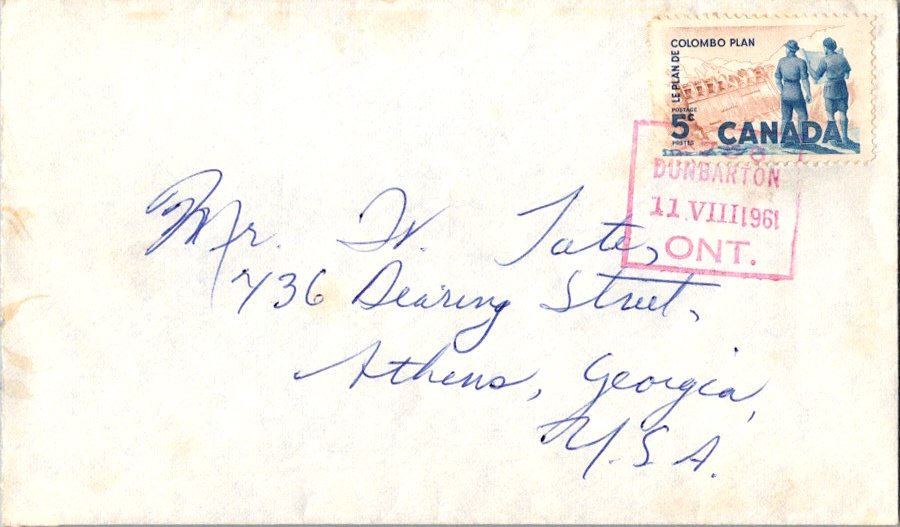 COLOMBO PLAN
LE PLAN DE
POSTAGE
5c
POSTES
CANADA
DUNBARTON
11 VIII 1961
ONT.
Mr. W. Tate,
736 Dearing Street,
Athens, Georgia,
U.S.A.